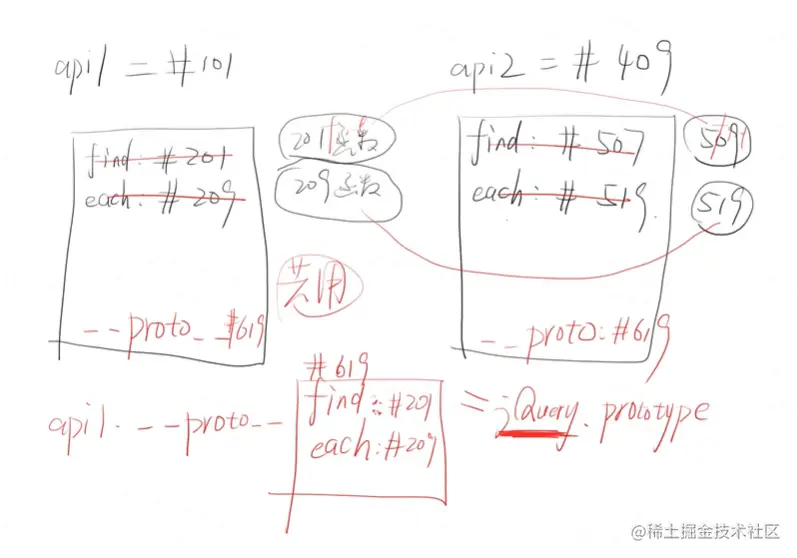 api1 = #101
api2 = # 409
find: # 201
each: # 209
201函数
209函数
find: # 507
each: # 519
509
519
共用
--proto_ _#619
_ _proto: #619
#619
api1. - --proto_ -
find: #201
each: #209
= jQuery. prototype
@稀土掘金技术社区